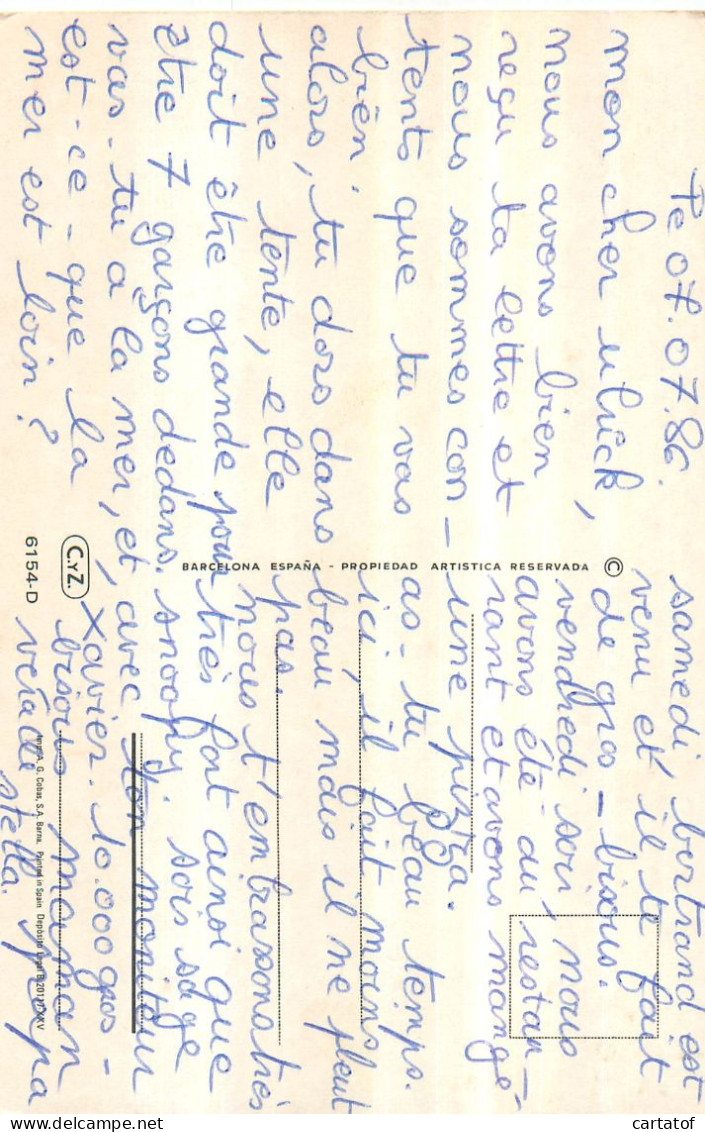 Le 07.07.86.
mon cher ulrick,
nous avons bien
reçu ta lettre et
nous sommes con-
tents que tu vas
bien.
alors, tu dors dans
une tente, elle
doit être grande pour
être 7 garçons dedans.
vas-tu a la mer, et,
est-ce-que la
mer est loin?
samedi bertrand est
venu et il te fait
de gros-bisous.
vendredi soir nous
avons été au restau-
rant et avons mangé
une pizza.
as-tu beau temps.
ici, il fait moins
beau mais il ne pleut
pas.
nous t'embrassons très
très fort ainsi que
snoopy. sois sage
avec ton moniteur
Xavier. 10.000 gros-
bisous maman
papa
stella.
BARCELONA ESPAÑA - PROPIEDAD ARTISTICA RESERVADA ©
C.YZ.
6154-D
Imp. A. G. Cobas, S.A. Barna. Printed in Spain Depósito Legal B.
cartatof